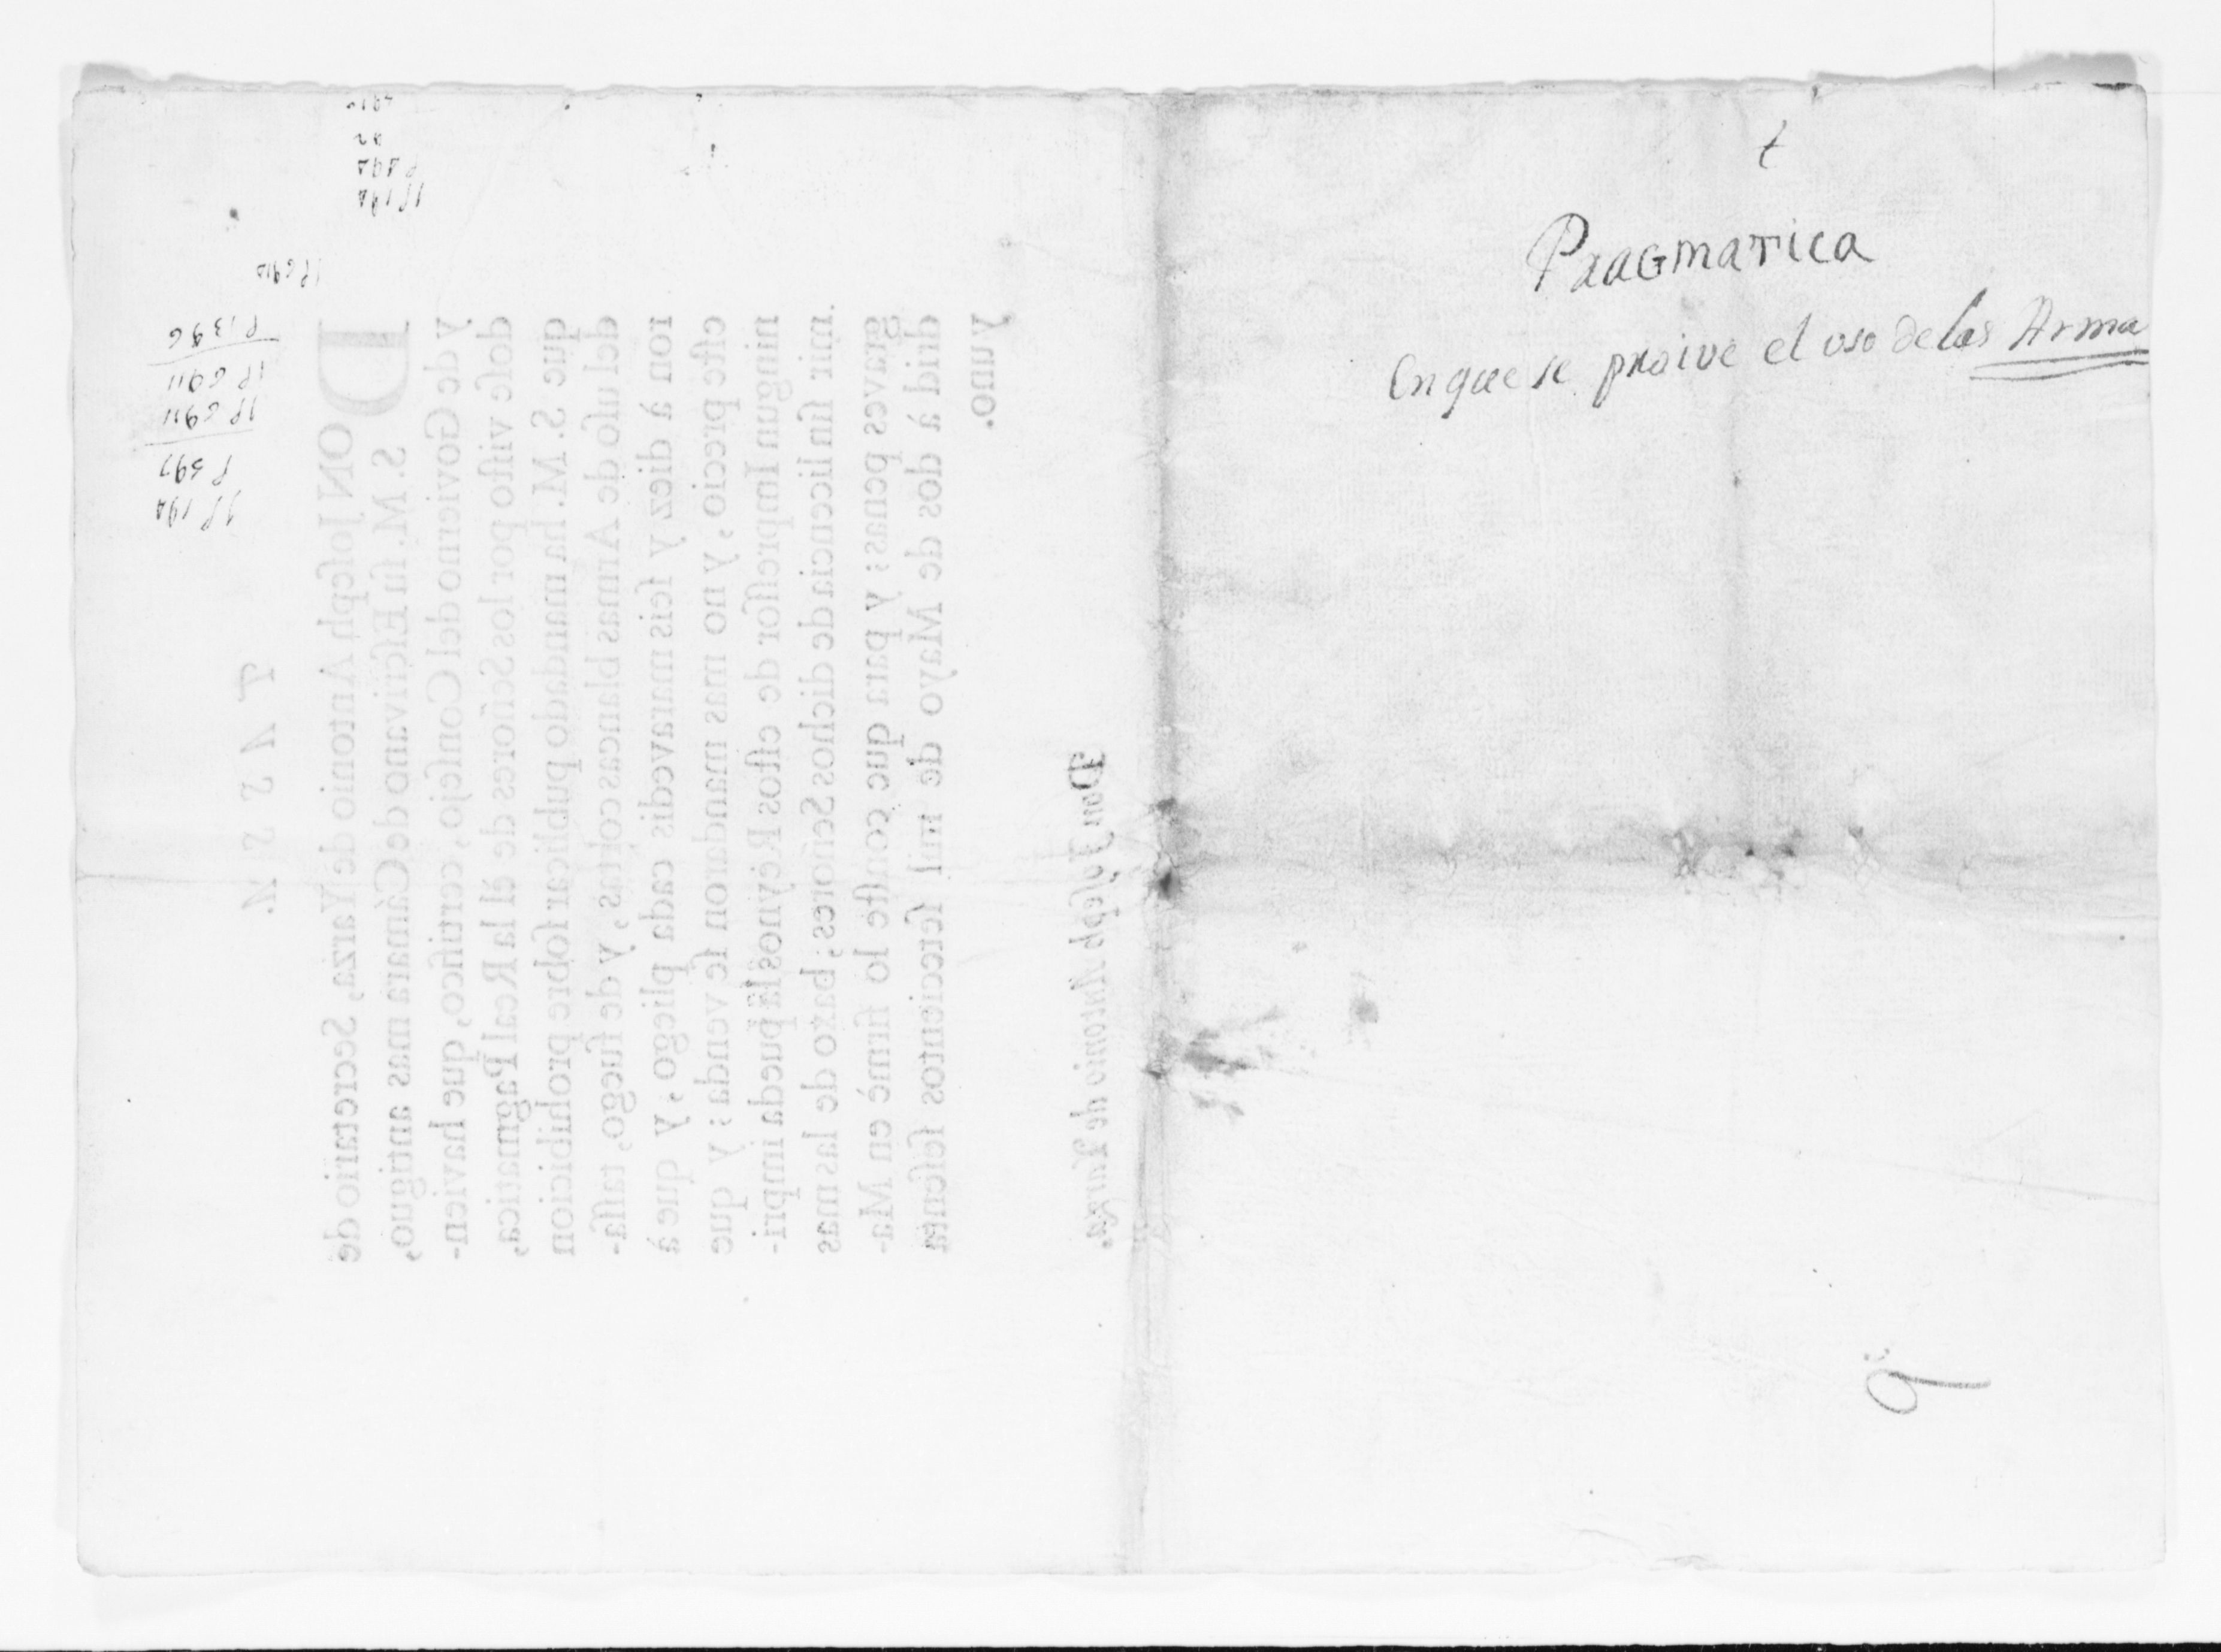 Pragmatica
En que se proive el uso de las Arma
TASSA.
DON Joſeph Antonio de Yarza, Secretario de
S. M. ſu Eſcrivano de Cámara mas antiguo,
y de Govierno del Conſejo, certifico, que havien-
doſe viſto por los Señores de èl la Real Pagmatica,
que S. M. ha mandado publicar ſobre prohibicion
del uſo de Armas blancas cortas, y de fuego, taſſa-
ron à diez y ſeis maravedis cada pliego, y que à
eſte precio, y no mas mandaron ſe venda; y que
ningun Impreſſor de eſtos Reynos la pueda impri-
mir ſin licencia de dichos Señores, baxo de las mas
graves penas; y para que conſte lo firmè en Ma-
drid à dos de Mayo de mil ſetecientos ſeſenta
y uno.
Don Joſeph Antonio de Yarza.